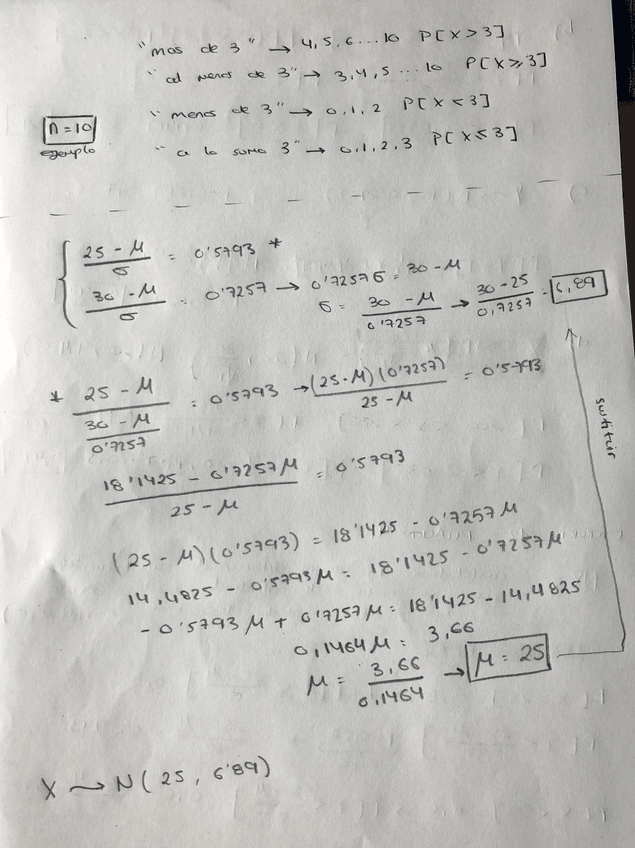 "mas de 3" → 4,5,6...10 P[X>3]
"al menos de 3" → 3,4,5...10 P[X≥3]
"menos de 3" → 0,1,2 P[X<3]
n=10
ejemplo
"a lo sumo 3" → 0,1,2,3 P[X≤3]
25 - M / σ = 0'5793 *
30 - M / σ = 0'7257 → 0'7257σ = 30 - M
σ = 30 - M / 0'7257 → 30 - 25 / 0,7257 = 6,89
* 25 - M / (30 - M / 0'7257) = 0'5793 → (25-M)(0'7257) / 25 - M = 0'5793
18'1425 - 0'7257M / 25 - M = 0'5793
(25 - M)(0'5793) = 18'1425 - 0'7257M
14,4825 - 0'5793M = 18'1425 - 0'7257M
- 0'5793M + 0'7257M = 18'1425 - 14,4825
0,1464M = 3,66
M = 3,66 / 0,1464 → M = 25
X ⟶ N(25, 6'89)